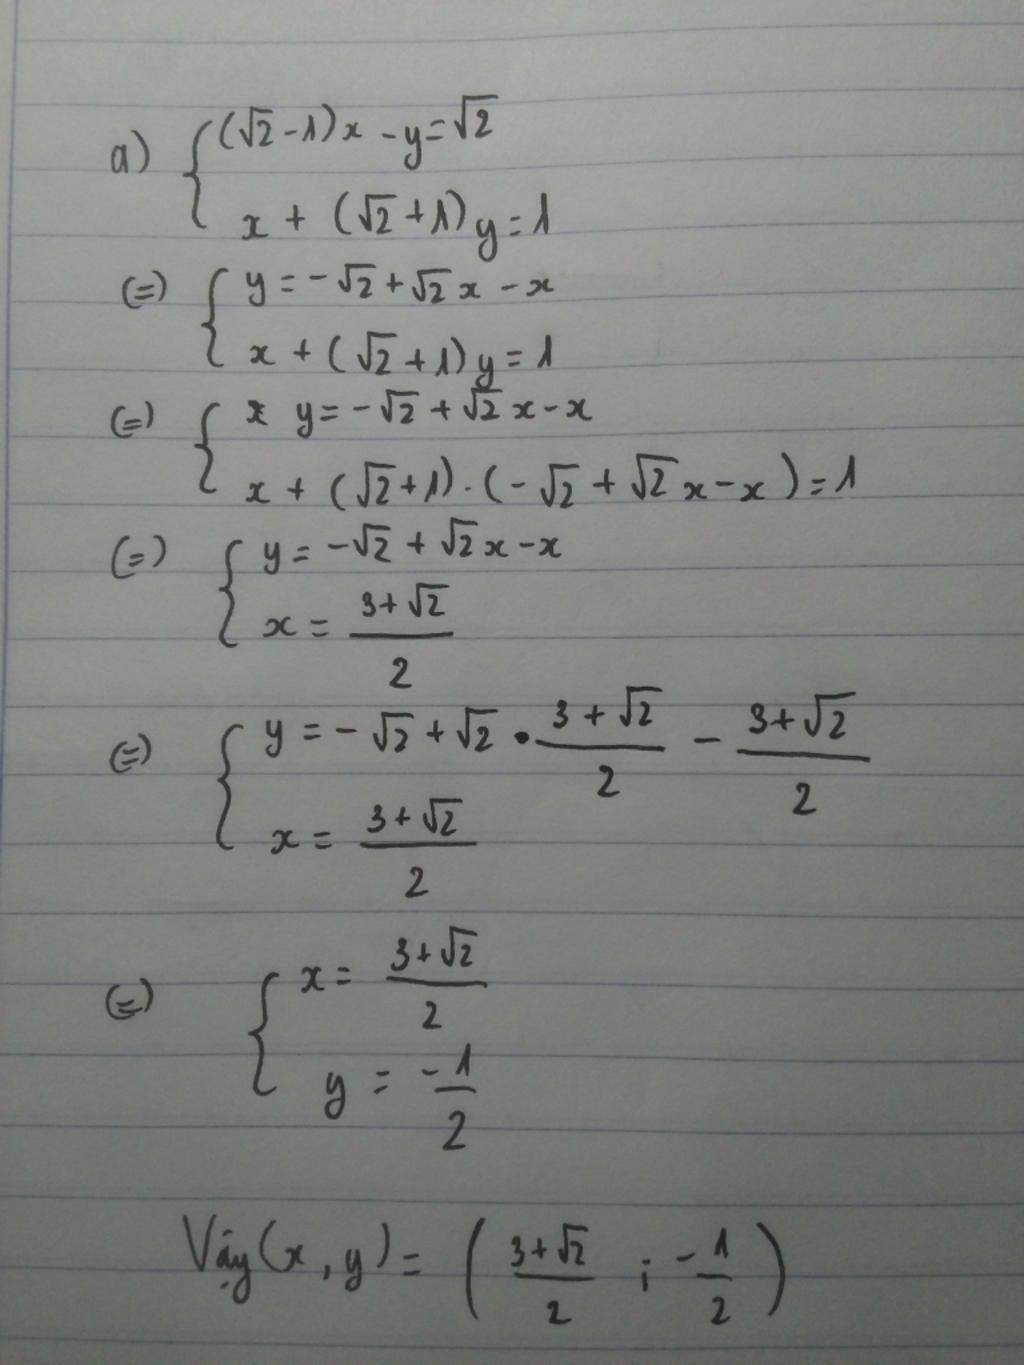 a) { (√2-1)x - y = √2
x + (√2+1)y = 1
(=) { y = -√2 + √2x - x
x + (√2+1)y = 1
(=) { x y = -√2 + √2x - x
x + (√2+1).(-√2 + √2x - x) = 1
(=) { y = -√2 + √2x - x
x = (3+√2)/2
(=) { y = -√2 + √2 • (3+√2)/2 - (3+√2)/2
x = (3+√2)/2
(=) { x = (3+√2)/2
y = -1/2
Vậy (x, y) = ((3+√2)/2 ; -1/2)